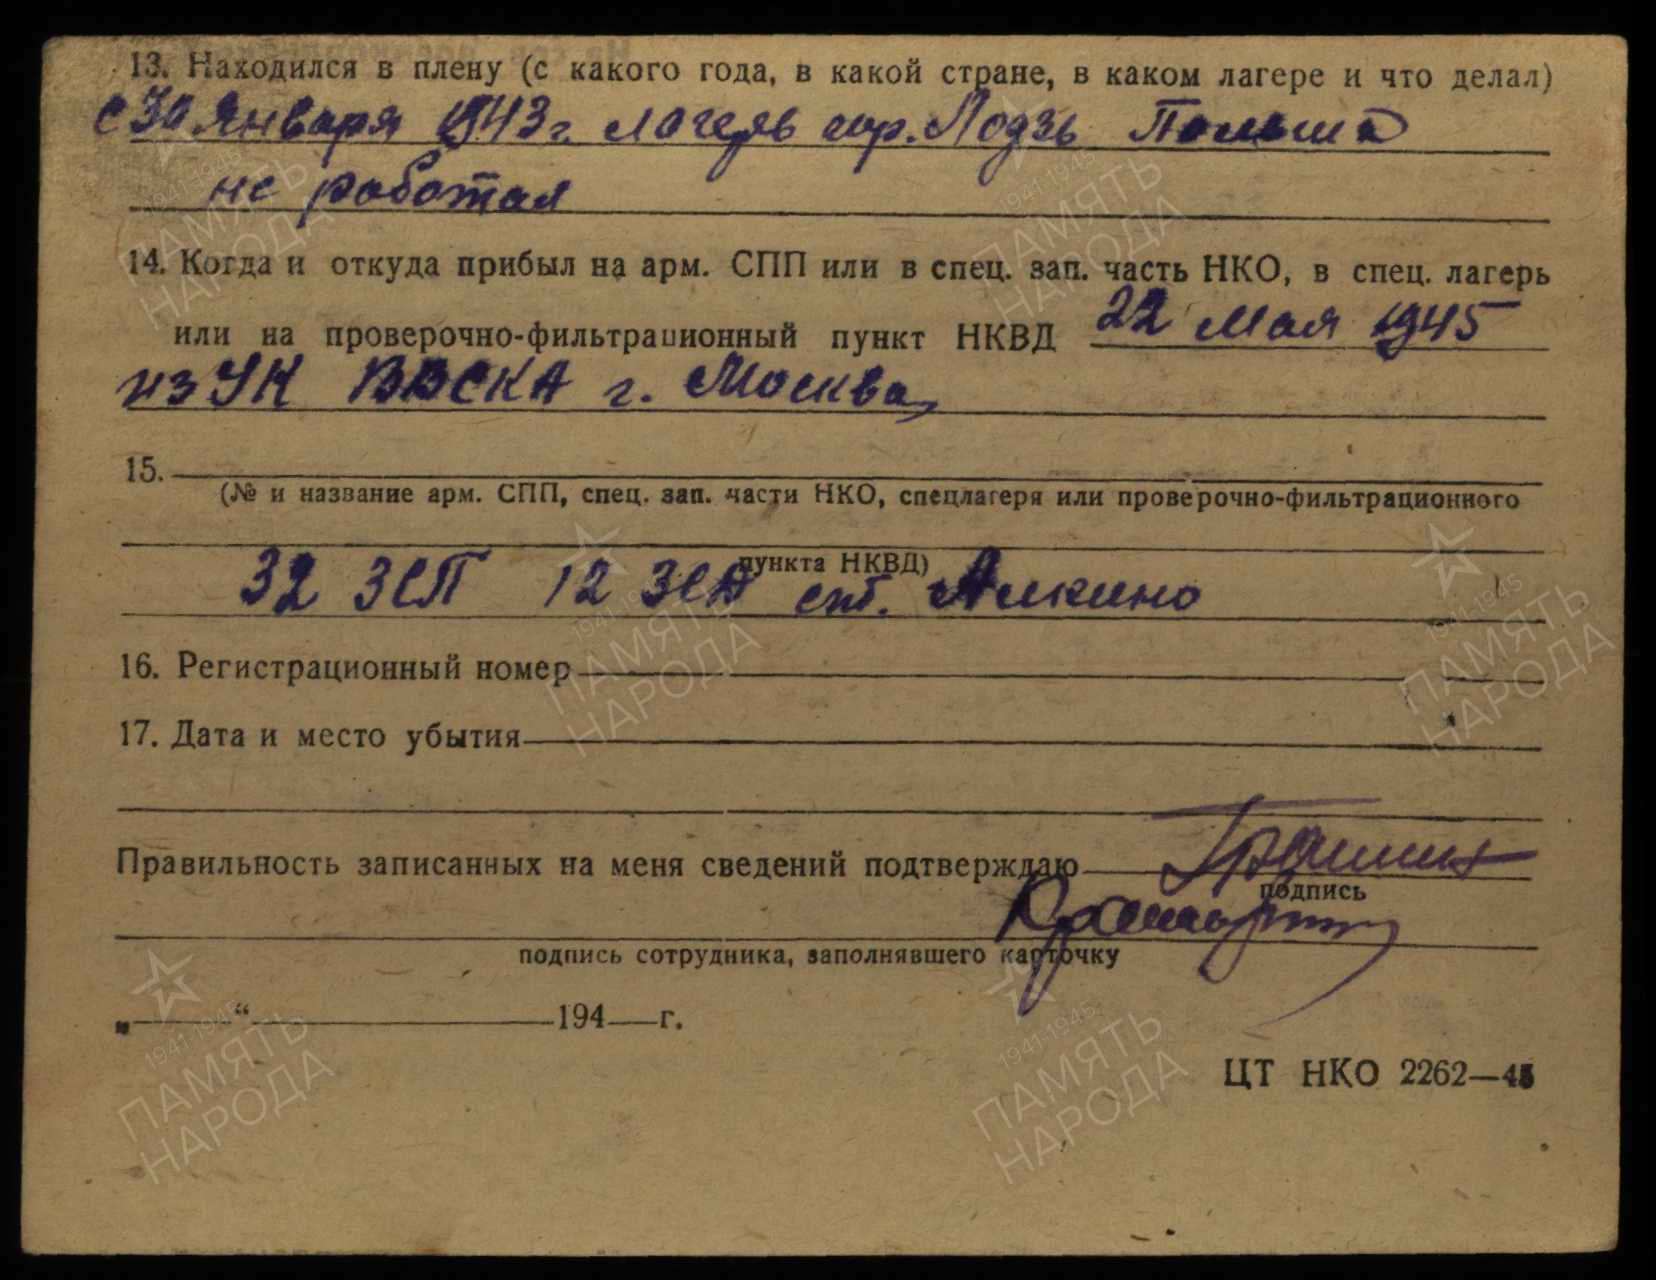 13. Находился в плену (с какого года, в какой стране, в каком лагере и что делал)
с 30 Января 1943 г. лагерь гор. Лодзь Польша
не работал
14. Когда и откуда прибыл на арм. СПП или в спец. зап. часть НКО, в спец. лагерь
или на проверочно-фильтрационный пункт НКВД 22 Мая 1945
из УК ВВС КА г. Москва
15.
(№ и название арм. СПП, спец. зап. части НКО, спецлагеря или проверочно-фильтрационного
пункта НКВД)
32 ЗСП 12 ЗСД ст. Алкино
16. Регистрационный номер
17. Дата и место убытия
Правильность записанных на меня сведений подтверждаю
подпись
подпись сотрудника, заполнявшего карточку
„ “ 194 г.
ЦТ НКО 2262—45
1941-1945
ПАМЯТЬ
НАРОДА